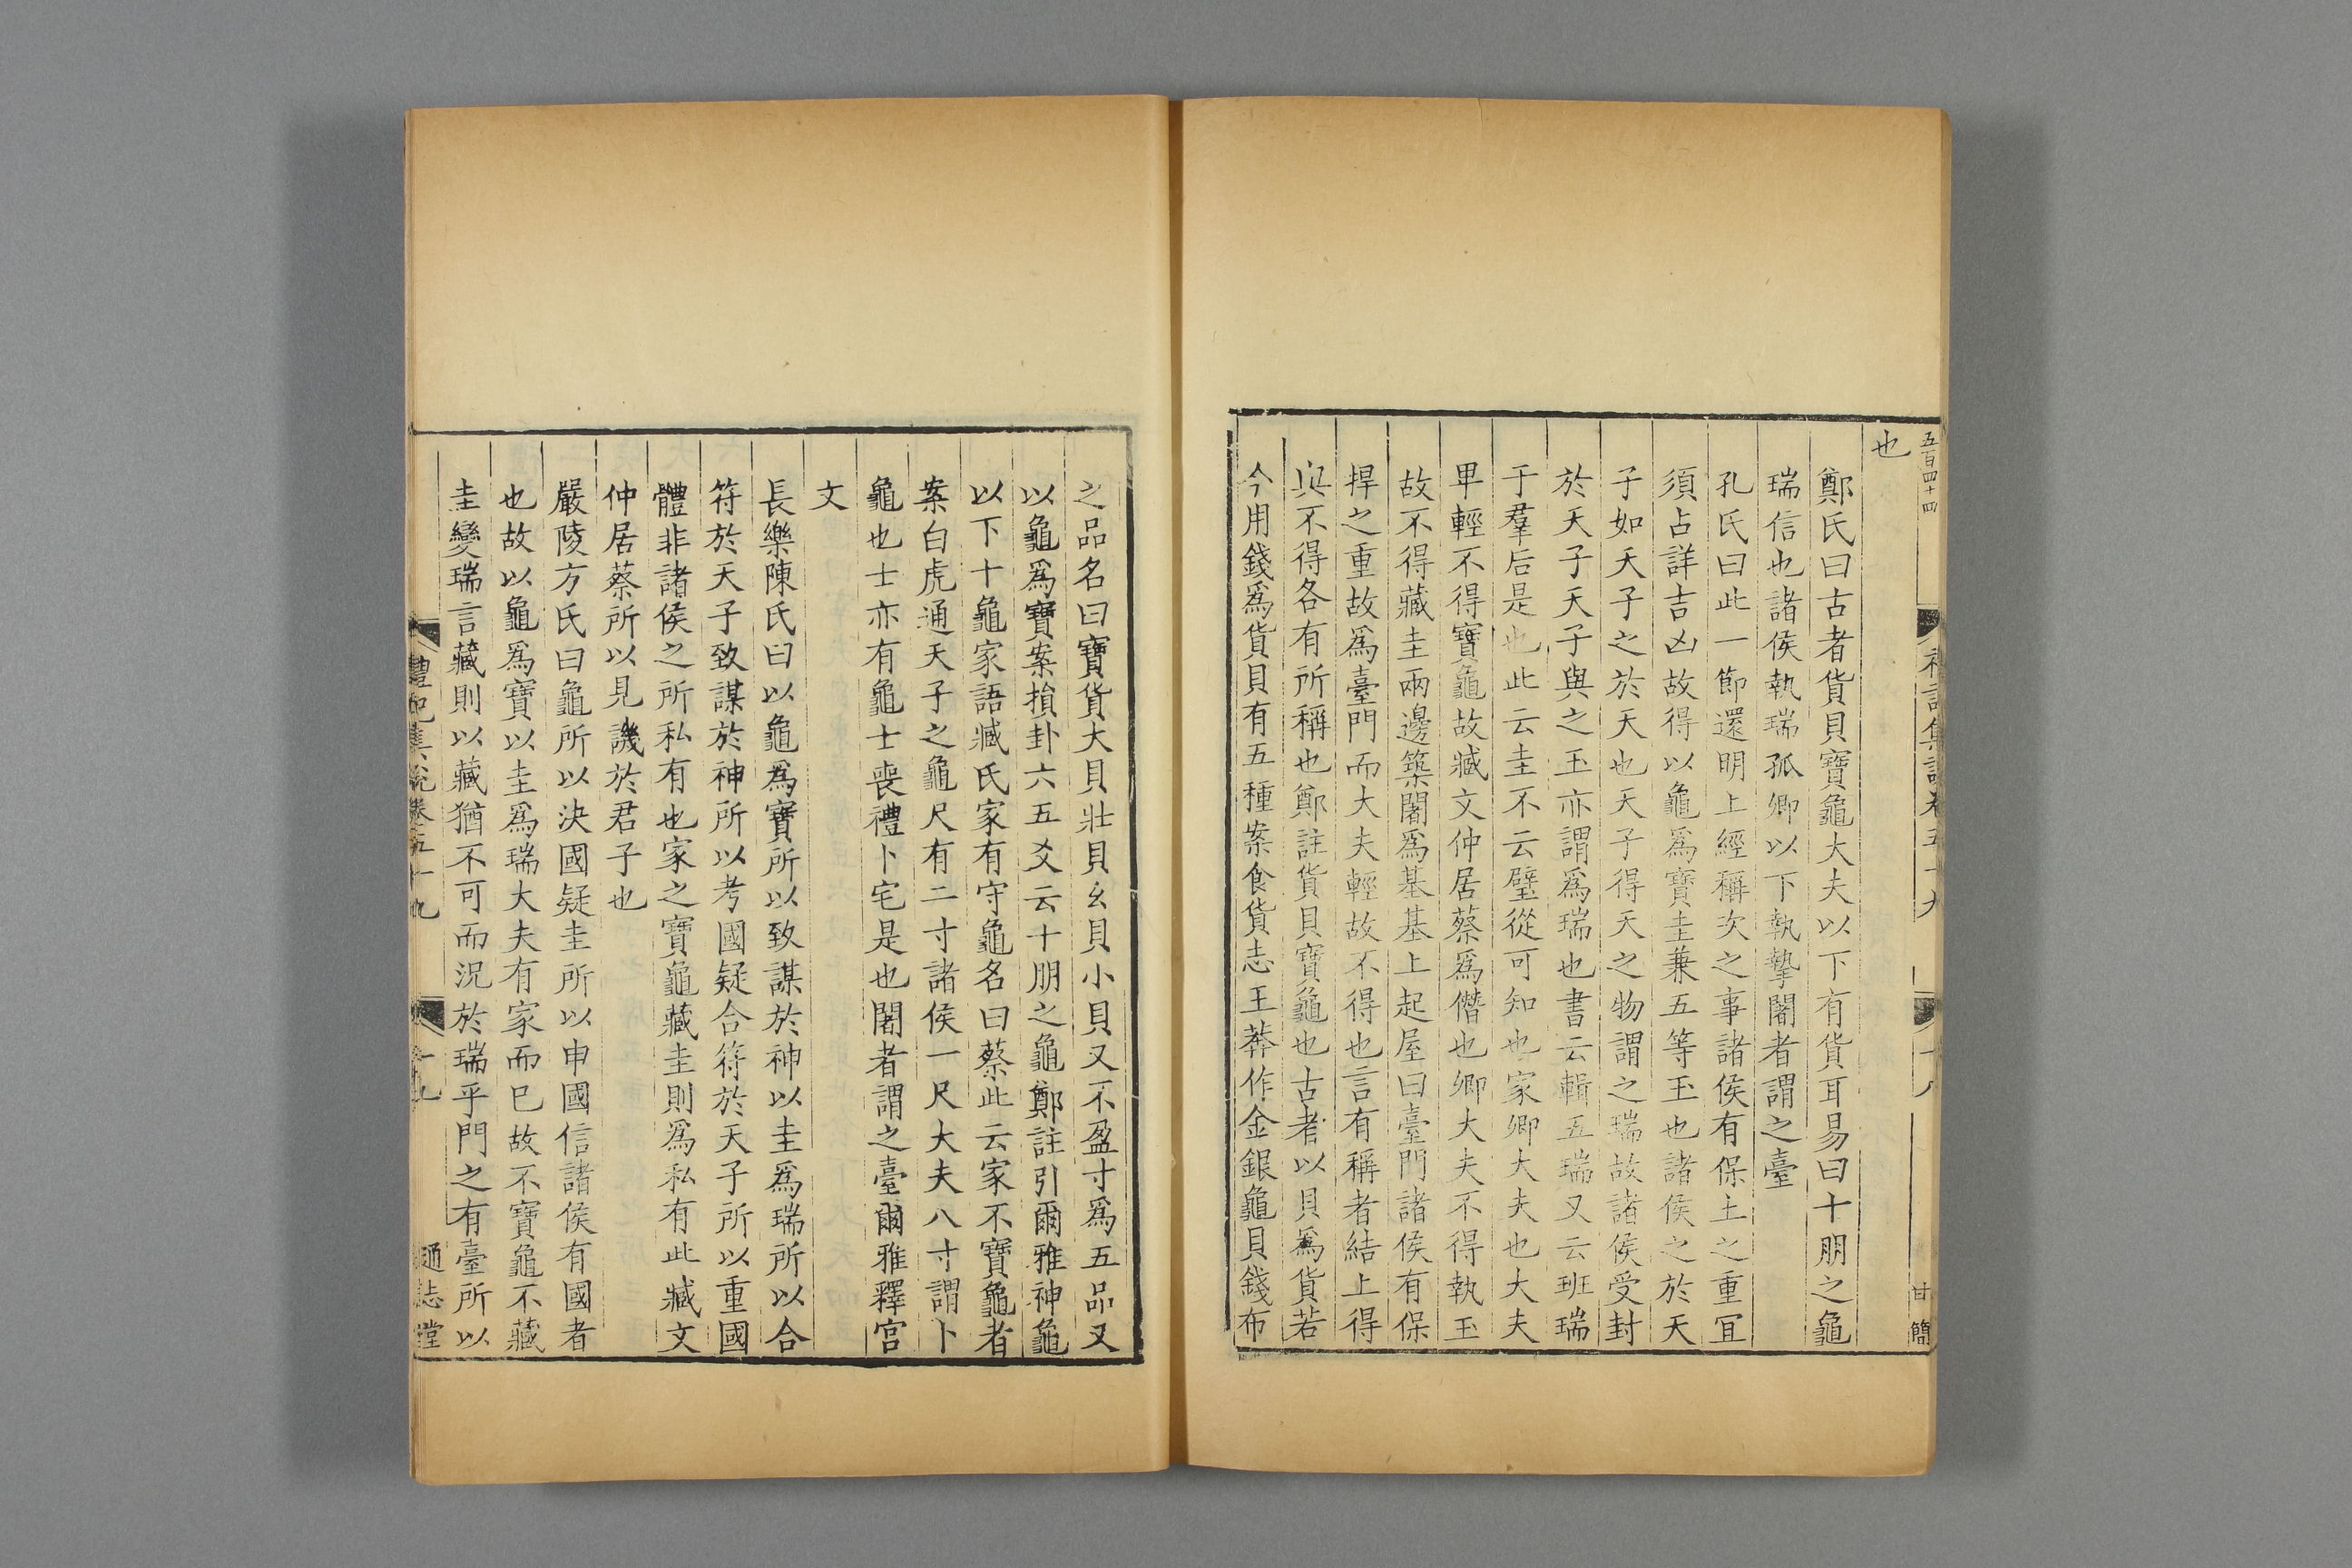 五百四十四
禮記集說卷五十九
十八
甘簡
也
鄭氏曰古者貨貝寶龜大夫以下有貨耳易曰十朋之龜
瑞信也諸侯執瑞孤卿以下執摯闍者謂之臺
孔氏曰此一節還明上經稱次之事諸侯有保土之重宜
須占詳吉凶故得以龜爲寶圭兼五等玉也諸侯之於天
子如天子之於天也天子得天之物謂之瑞故諸侯受封
於天子天子與之玉亦謂爲瑞也書云輯五瑞又云班瑞
于羣后是也此云圭不云璧從可知也家卿大夫也大夫
卑輕不得寶龜故臧文仲居蔡爲僭也卿大夫不得執玉
故不得藏圭兩邊築闍爲基基上起屋曰臺門諸侯有保
捍之重故爲臺門而大夫輕故不得也言有稱者結上得
與不得各有所稱也鄭註貨貝寶龜也古者以貝爲貨若
今用錢爲貨貝有五種案食貨志王莽作金銀龜貝錢布
之品名曰寶貨大貝壯貝幺貝小貝又不盈寸爲五品又
以龜爲寶案損卦六五爻云十朋之龜鄭註引爾雅神龜
以下十龜家語臧氏家有守龜名曰蔡此云家不寶龜者
案白虎通天子之龜尺有二寸諸侯一尺大夫八寸謂卜
龜也士亦有龜士喪禮卜宅是也闍者謂之臺爾雅釋宫
文
長樂陳氏曰以龜爲寶所以致謀於神以圭爲瑞所以合
符於天子致謀於神所以考國疑合符於天子所以重國
體非諸侯之所私有也家之寶龜藏圭則爲私有此臧文
仲居蔡所以見譏於君子也
嚴陵方氏曰龜所以決國疑圭所以申國信諸侯有國者
也故以龜爲寶以圭爲瑞大夫有家而已故不寶龜不藏
圭變瑞言藏則以藏猶不可而況於瑞乎門之有臺所以
禮記集說卷五十九
十九
通志堂